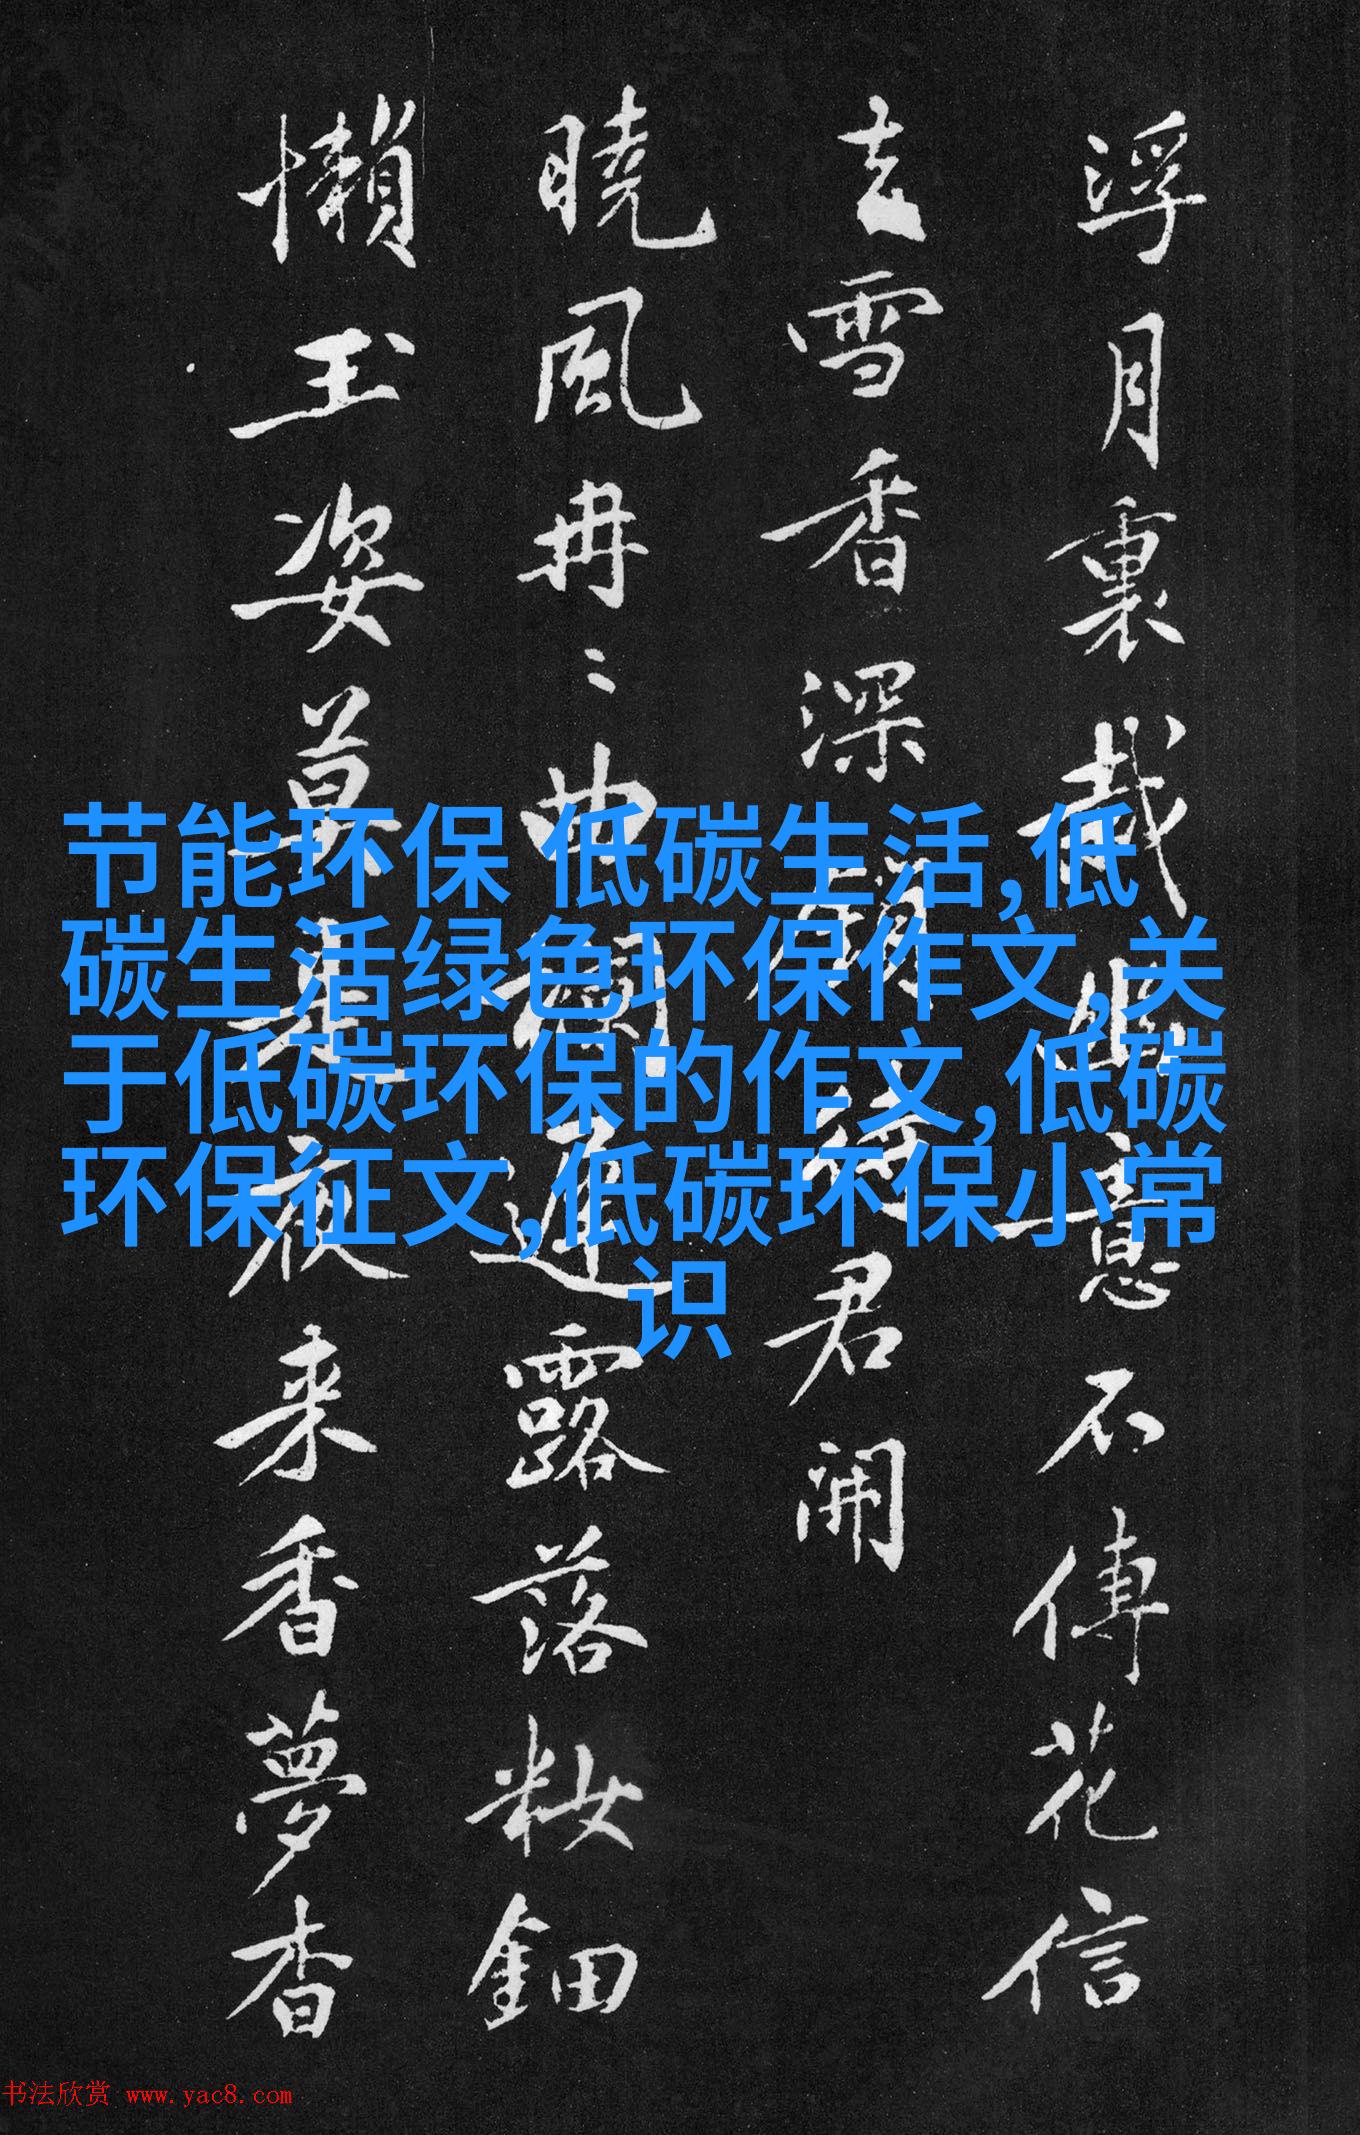 节能环保 低碳生活,低
碳生活绿色环保作文,关
于低碳环保的作文,低碳
环保征文,低碳环保小常
识
浮月裏哉幽意不傳花信
雪香深君開
曉風冉〻曲闌通露落籹鈿
懶玉姿莫是夜来香夢杳
书法欣赏 www.yac8.com